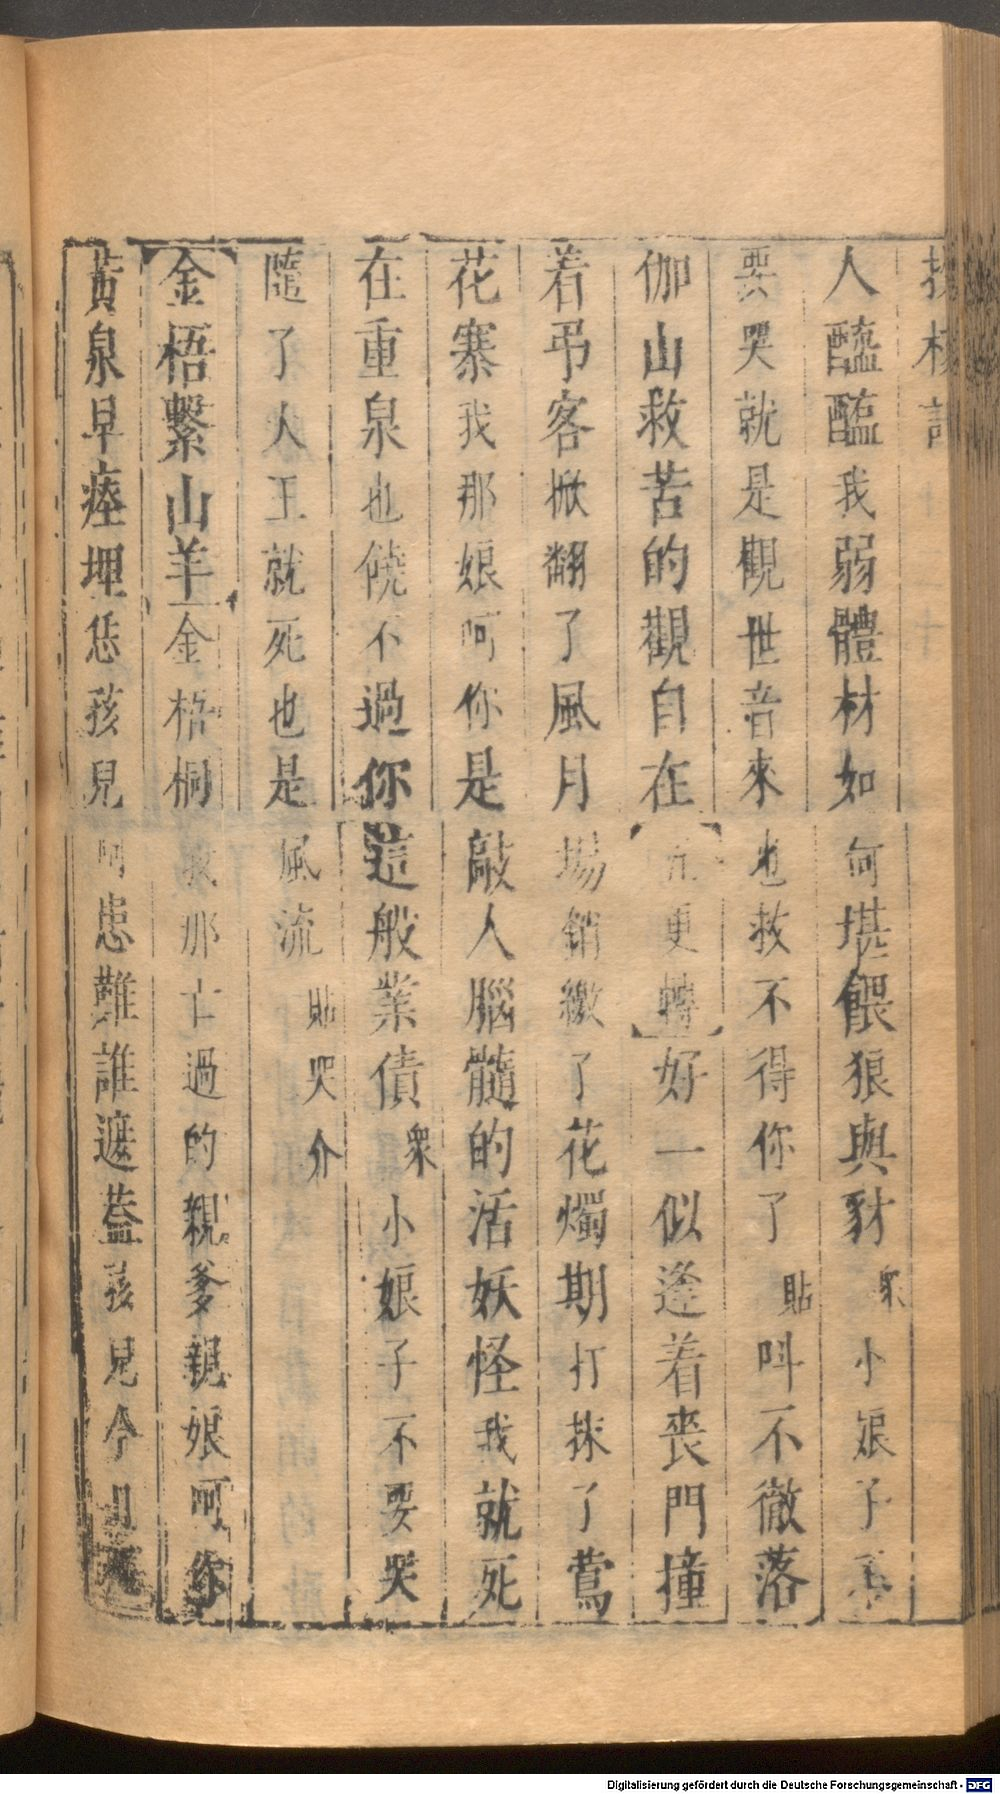 投梭記
人醯醢我弱體材如何堪餵狼與豺衆小娘子不
要哭就是觀世音來也救不得你了貼叫不徹落
伽山救苦的觀自在五更轉好一似逢着喪門撞
着弔客掀翻了風月場銷繳了花燭期打抹了鶯
花寨我那娘呵你是敲人腦髓的活妖怪我就死
在重泉也饒不過你這般業債衆小娘子不要哭
隨了人王就死也是風流貼哭介
金梧繫山羊金梧桐我那亡過的親爹親娘呵你
黃泉早瘞埋恁孩兒呵患難誰遮蓋孩兒今
Digitalisierung gefördert durch die Deutsche Forschungsgemeinschaft - DFG